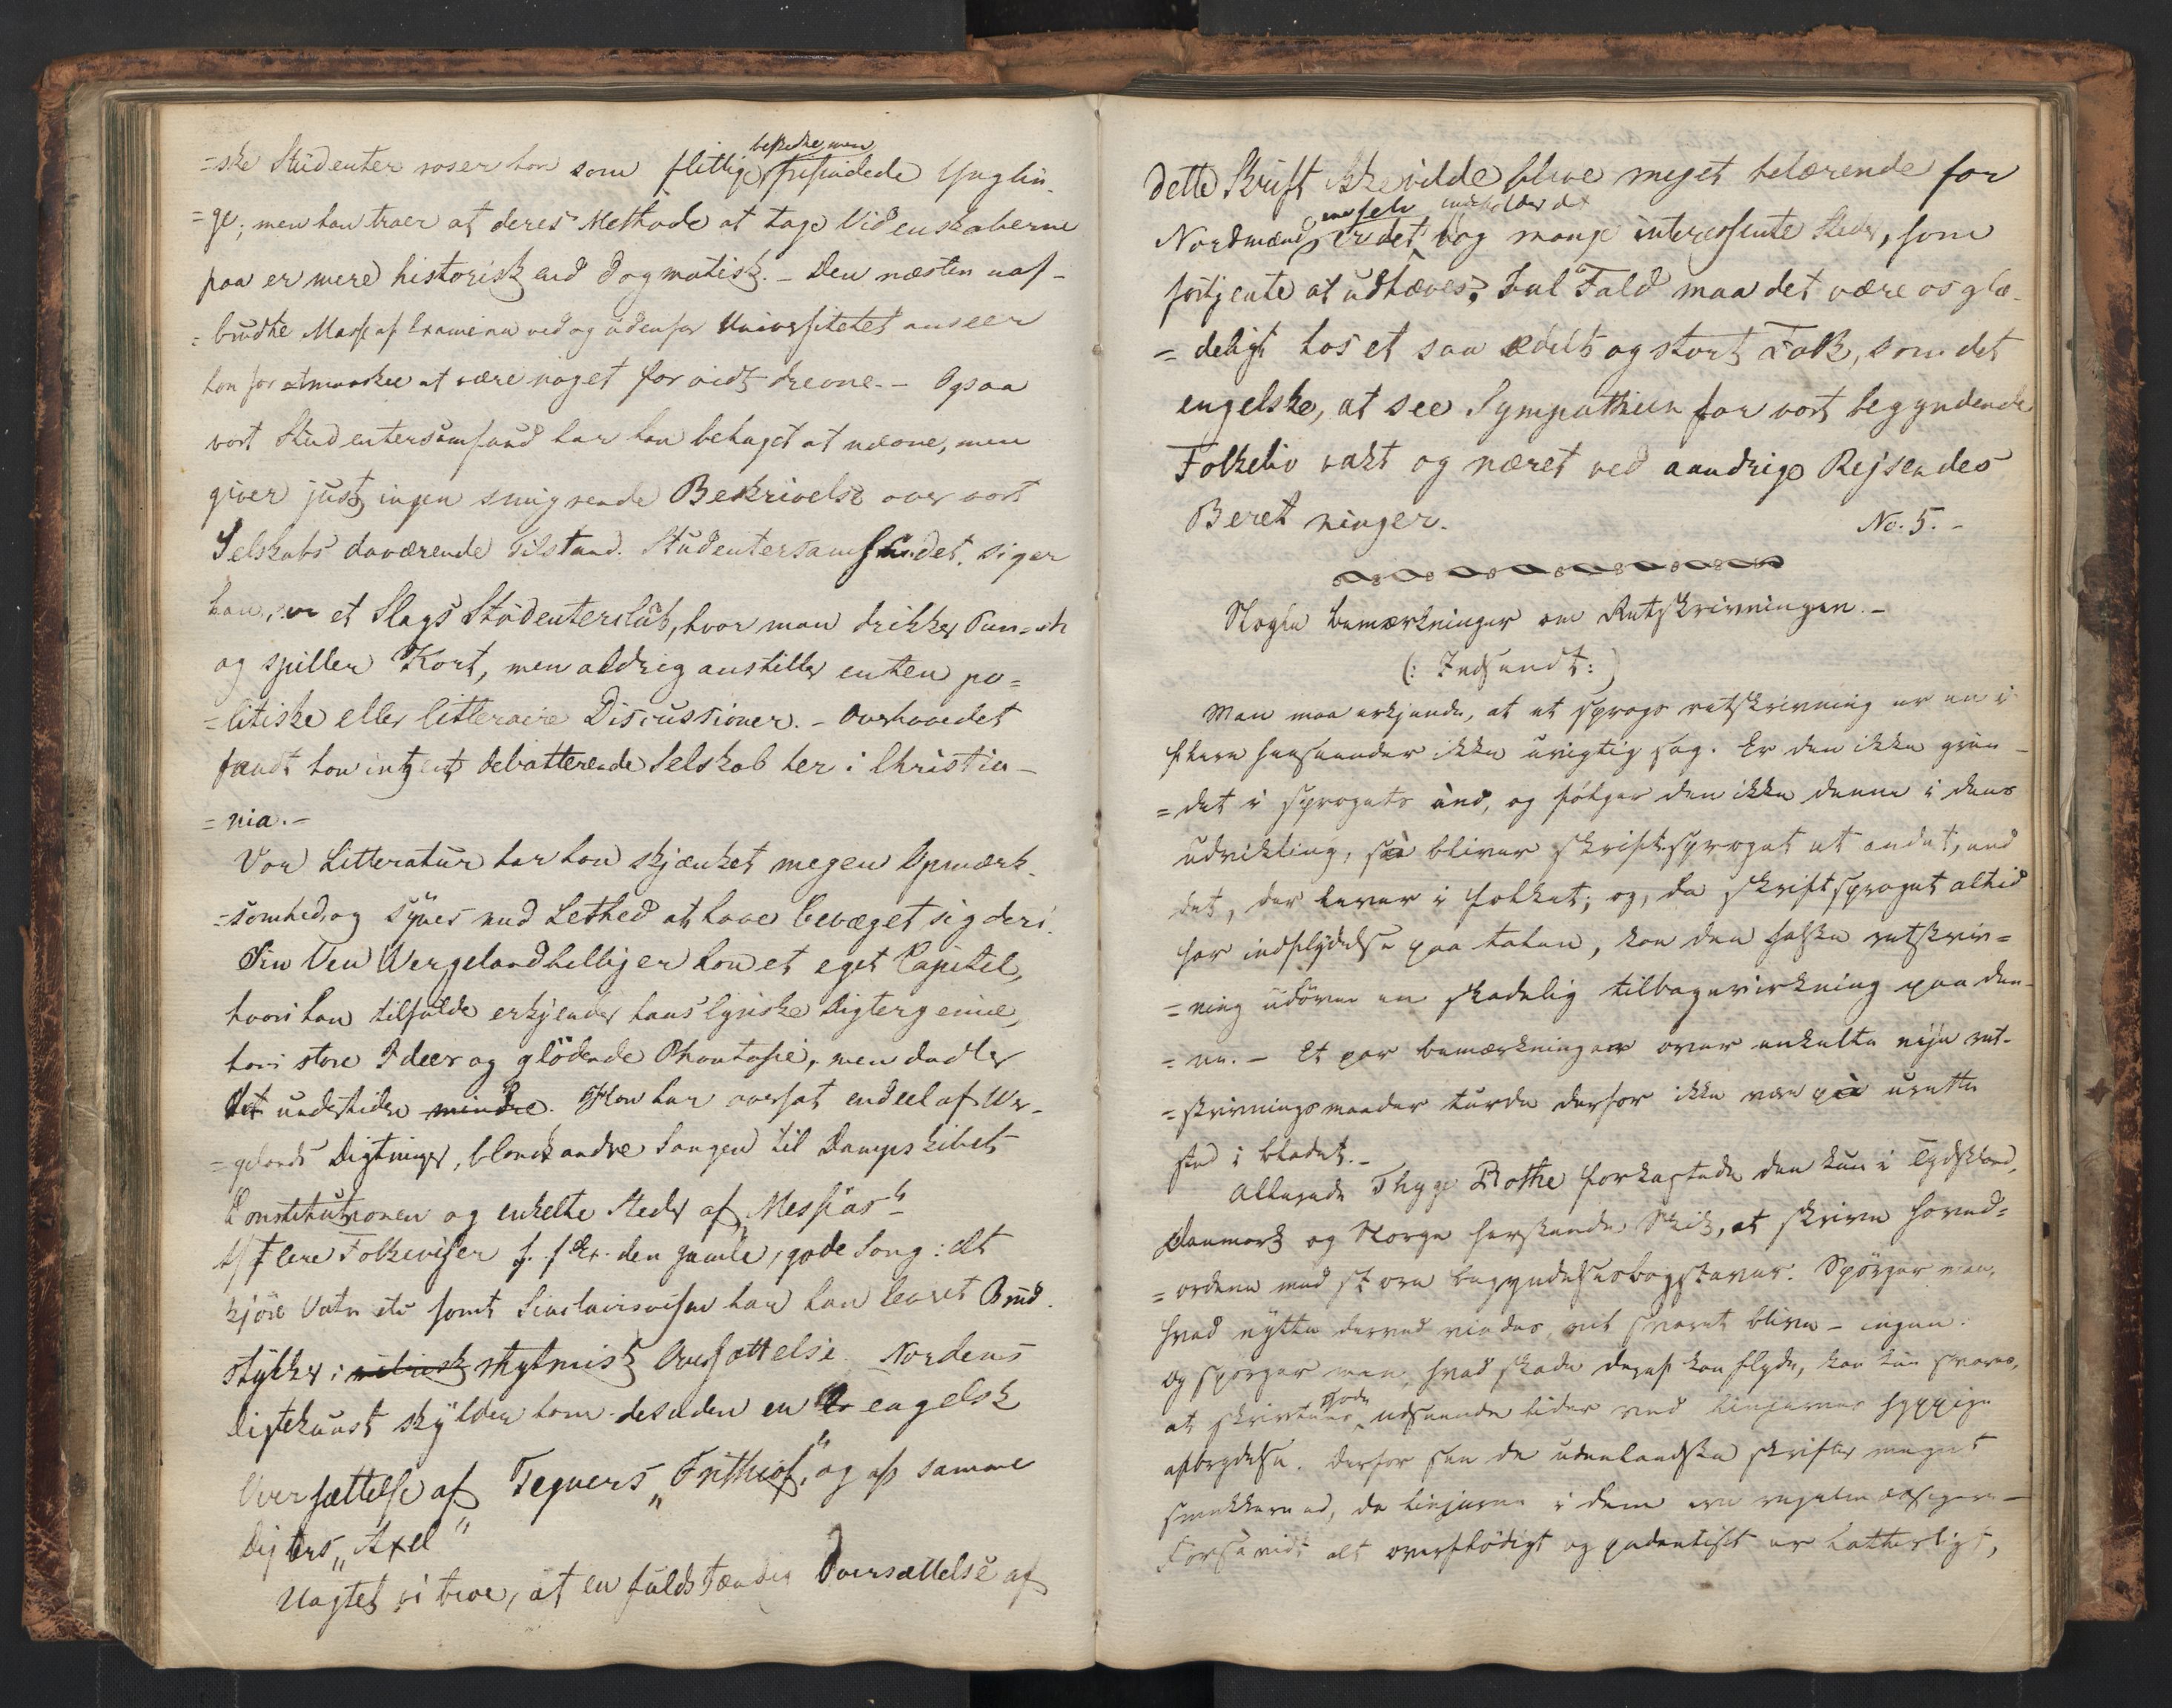 =ske Studenter roser han som flittige, beskedne men frisindede Ynglin-
=ge; men han troer at deres Methode at tage Videnskaberne
paa er mere historisk end dogmatisk. – Den næsten uaf-
=brudte Masse af Examina ved og udenfor Universitetet anseer
han for at maaskee at være noget for vidt drevne. – Ogsaa
vort Studentersamfund har han behaget at nævne, men
giver just ingen smigrende Beskrivelse over vort
Selskabs daværende Tilstand. Studentersamfundet, siger
han, er et Slags Studenterclub, hvor man drikker Punsch
og spiller Kort, men aldrig anstiller enten po=
=litiske eller litteraire Discussioner. – Overhovedet
fandt han intet debatterende Selskab her i Christia-
=nia. –
Vor Litteratur har han skjænket megen Opmærk-
=somhed, og synes med Lethed at have bevæget sig deri.
Sin Ven Wergeland helliger han et eget Capitel,
hvori han tilfulde erkjender hans lyriske Digtergenie,
hans store Ideer og glödende Phantasie, men dadler
det undertiden mindre. Han har oversat endeel af Wer-
=gelands Digtninger, blandt andre Sangen til Dampskibet
Constitutionen og enkelte Steder af „Messias“
Af flere Folkeviser f. Ex. den gamle, gode Sang: At
kjöre Vatn etc samt Sinclairsvisen har han leveret Brud-
stykker i rhytmisk Oversættelse. Nordens
Digtekunst skylder ham desuden en engelsk
Oversættelse af Tegners „Frithiof,“ og af samme
Digters „Axel“
Uagtet vi troe, at en fuldstændig Oversættelse af
dette Skrift ikke vilde blive meget belærende for
Nordmænd selv indeholder det er det dog mange interessente Steder, som
fortjente at udhæves; I al Fald maa det være os glæ-
=deligt hos et saa ædelt og stort Folk, som det
engelske, at see Sympathien for vort begyndende
Folkeliv vakt og næret ved aandrige Rejsendes
Beretninger.
No. 5. –
Nogle bemærkninger om Retskrivningen. –
(: Indsendt :)
Man maa erkjende, at et sprogs retskrivning er en i
flere henseender ikke uvigtig sag. Er den ikke grun-
=det i sprogets ånd, og fölger den ikke denne i dens
udvikling, så bliver skriftsproget et andet, end
det, der lever i folket; og, da skriftsproget altid
har indflydelse paa talen, kan den falske retskriv=
=ning udöve en skadelig tilbagevirkning paa den-
=ne. – Et par bemærkninger over enkelte nye ret-
=skrivningsmaader turde derfor ikke være på urette
sted i bladet. –
Allerede Thyge Rothe forkastede den kun i Tydskland,
Danmark og Norge herskende Skik, at skrive hoved=
=ordene med store begyndelsesbogstaver. Spörger man,
hvad nytte derved vindes, vil svaret blive – ingen.
Og spörger man, hvad skade deraf kan flyde, kan kun svares,
at skriftens gode udseende lider ved linjernes hyppige
afbrydelse. Derfor see de udenlandske skrifter meget
smukkere ud, da linjerne i dem ere regelmæssigere –
Forsåvidt alt overflödigt og pedantisk er latterligt,